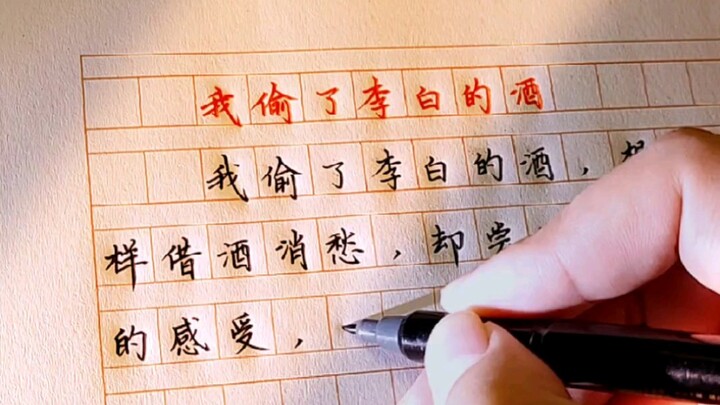 我偷了李白的酒
我偷了李白的酒，想
样借酒消愁，却尝
的感受，